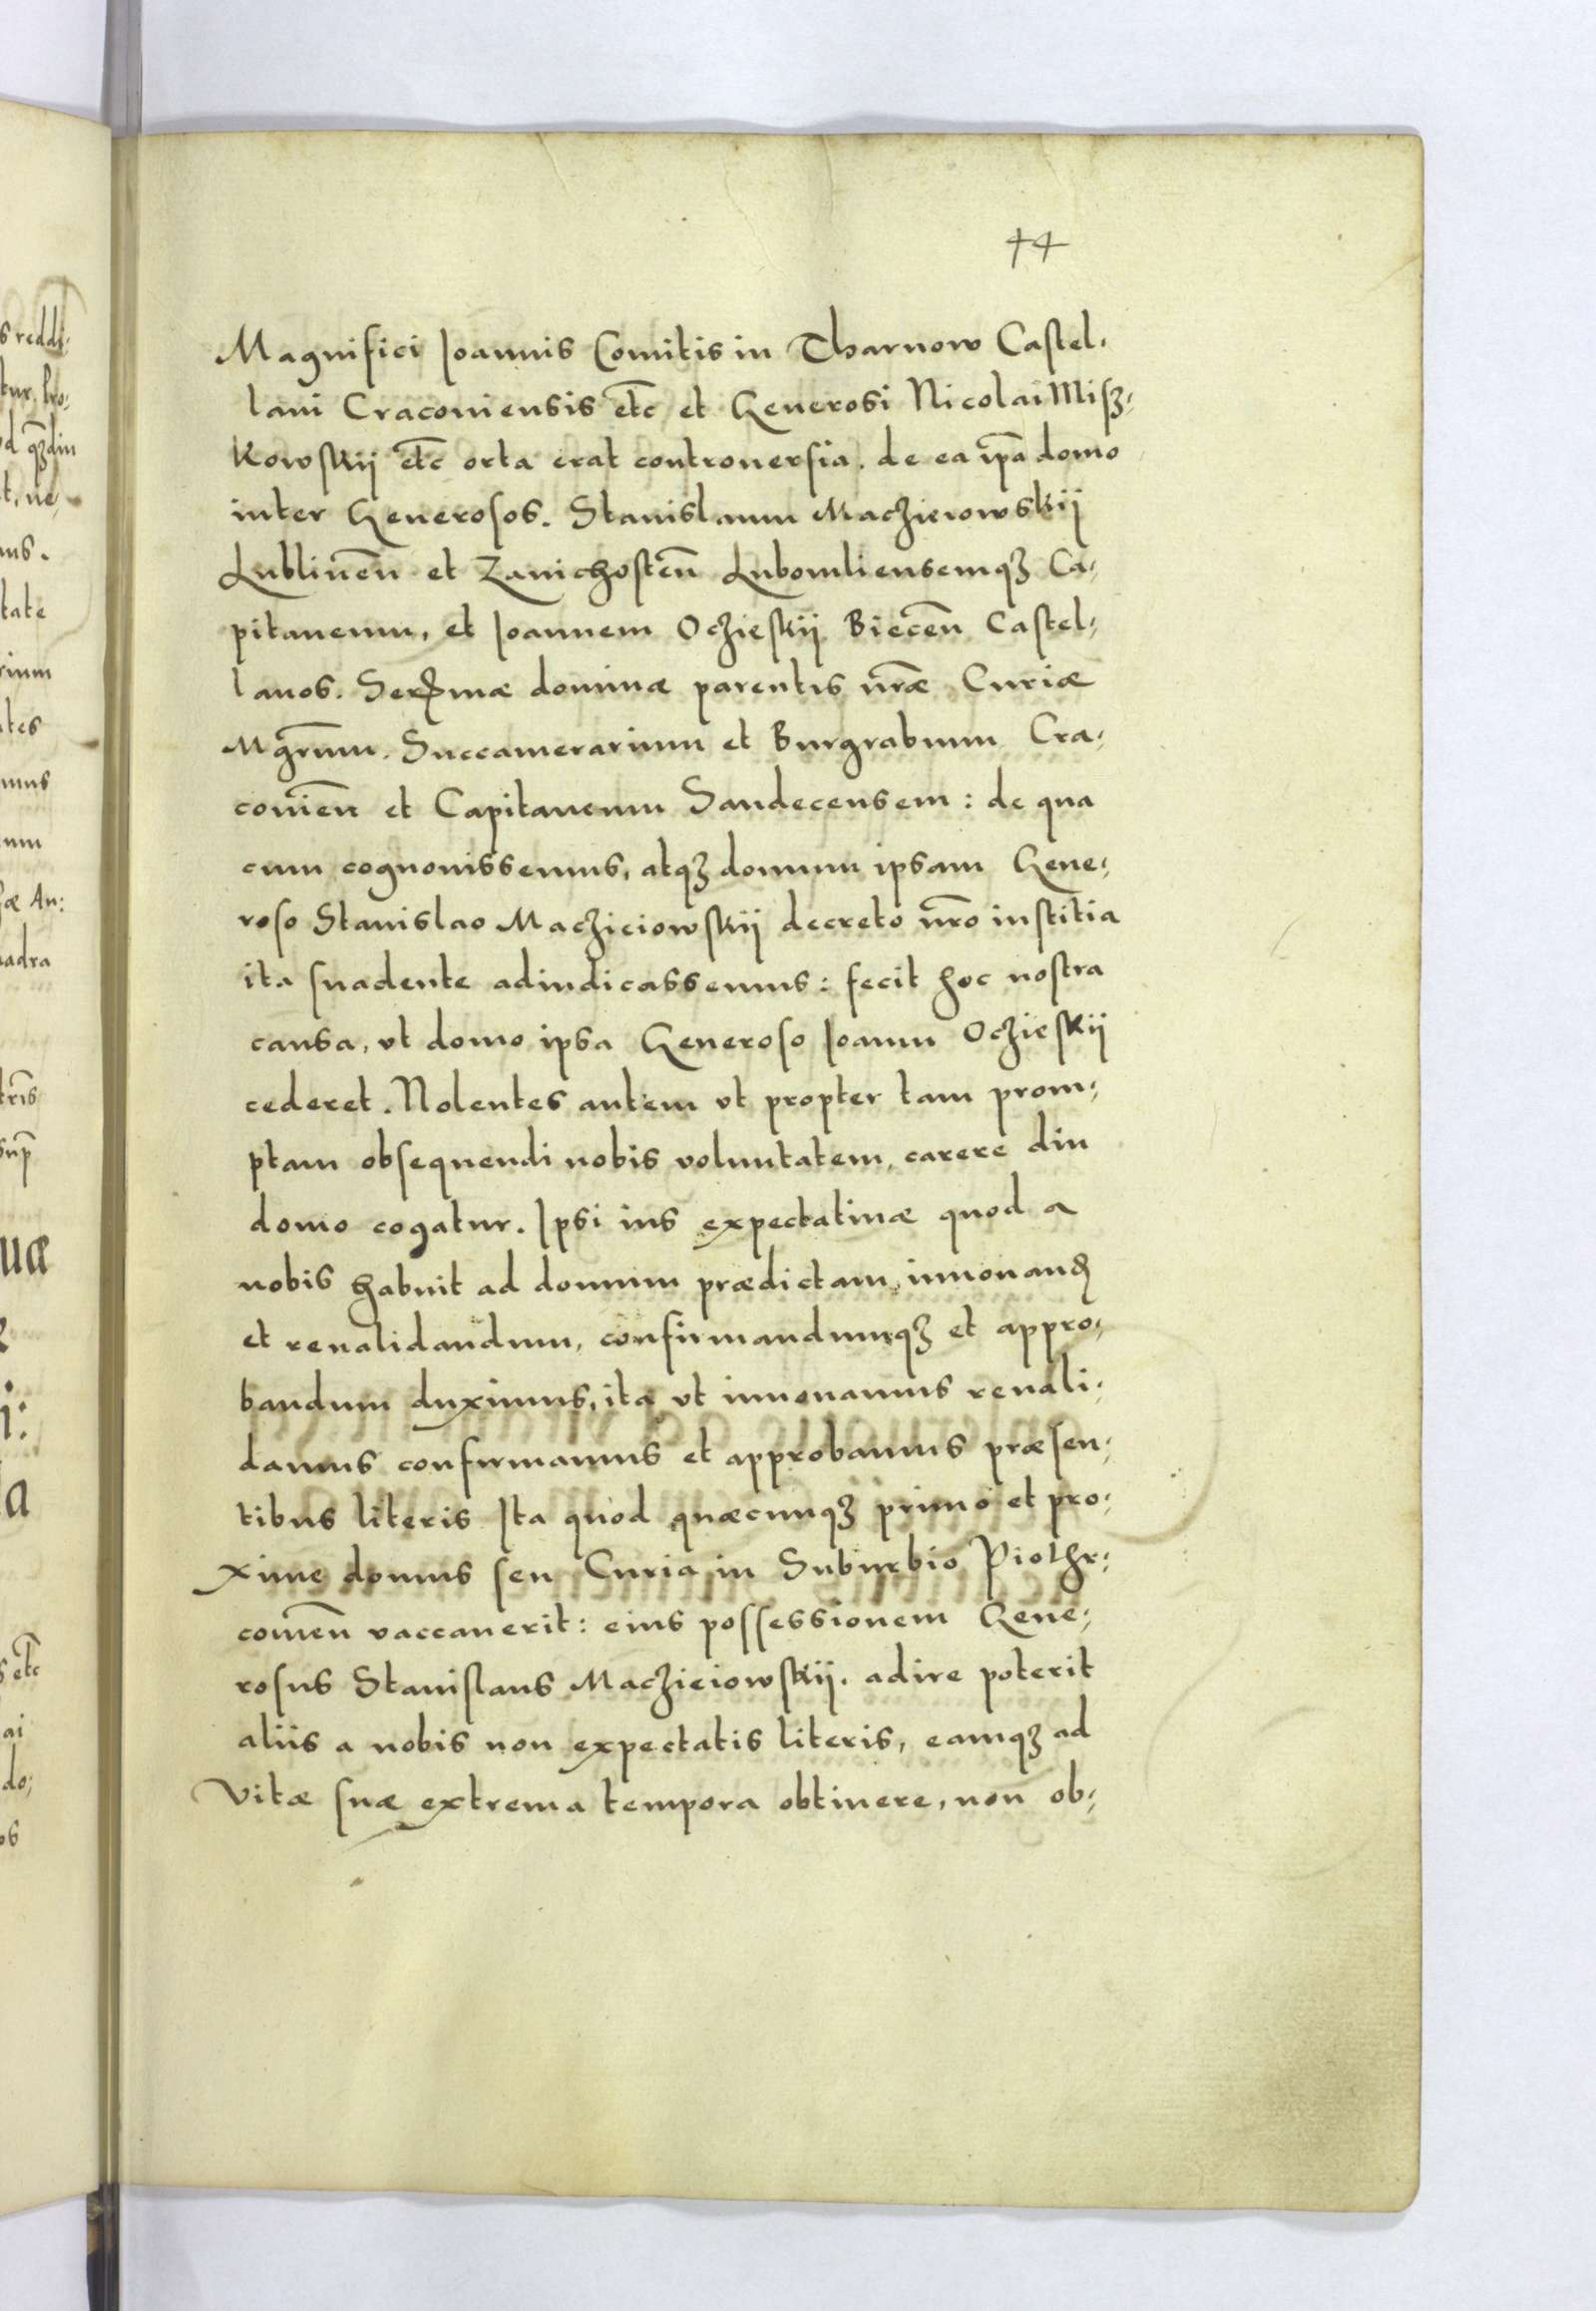 14
Magnifici Ioannis Comitis in Tharnow Castel-
lani Cracouiensis etc̄ et Generosi Nicolai Misz-
kowskij etc̄ orta erat controuersia. de ea ip̄a domo
inter Generosos. Stanislaum Macziejowskij
Lublineñ et Zauichosteñ Lubomliensemqꝫ Ca-
pitaneum, et Ioannem Oczieskij Bieceñ Castel-
lanos. Serꝫmæ dominæ parentis nr̄æ Curiæ
Mgr̄um. Succamerarium et Burgrabium Cra-
couieñ et Capitaneum Sandecensem: de qua
cum cognouissemus, atqꝫ domum ipsam Gene-
roso Stanislao Maczieiowskij decreto nr̄o iustitia
ita suadente adiudicassemus: fecit hoc nostra
causa, vt domo ipsa Generoso Ioanni Oczieskij
cederet. Nolentes autem vt propter tam prom-
ptam obsequendi nobis voluntatem, carere diu
domo cogatur. Ipsi ius expectatiuæ quod a
nobis habuit ad domum prædictam, innouandꝫ
et reualidandum, confirmandumqꝫ et appro-
bandum duximus, ita vt innouamus reuali-
damus confirmamus et approbamus præsen-
tibus literis Ita quod quæcunqꝫ primo et pro-
xime domus seu Curia in Suburbio Piothr-
couieñ vaccauerit: eius possessionem Gene-
rosus Stanislaus Maczieiowskij. adire poterit
aliis a nobis non expectatis literis, eamqꝫ ad
Vitæ suæ extrema tempora obtinere, non ob-